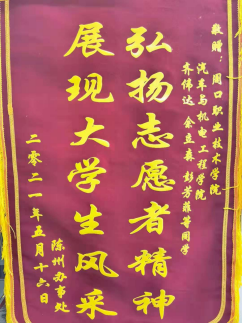 敬赠：周口职业技术学院
汽车与机电工程学院
齐伟达 余立森 彭芳薇等同学
弘扬志愿者精神
展现大学生风采
陈州办事处
二零二一年五月十六日